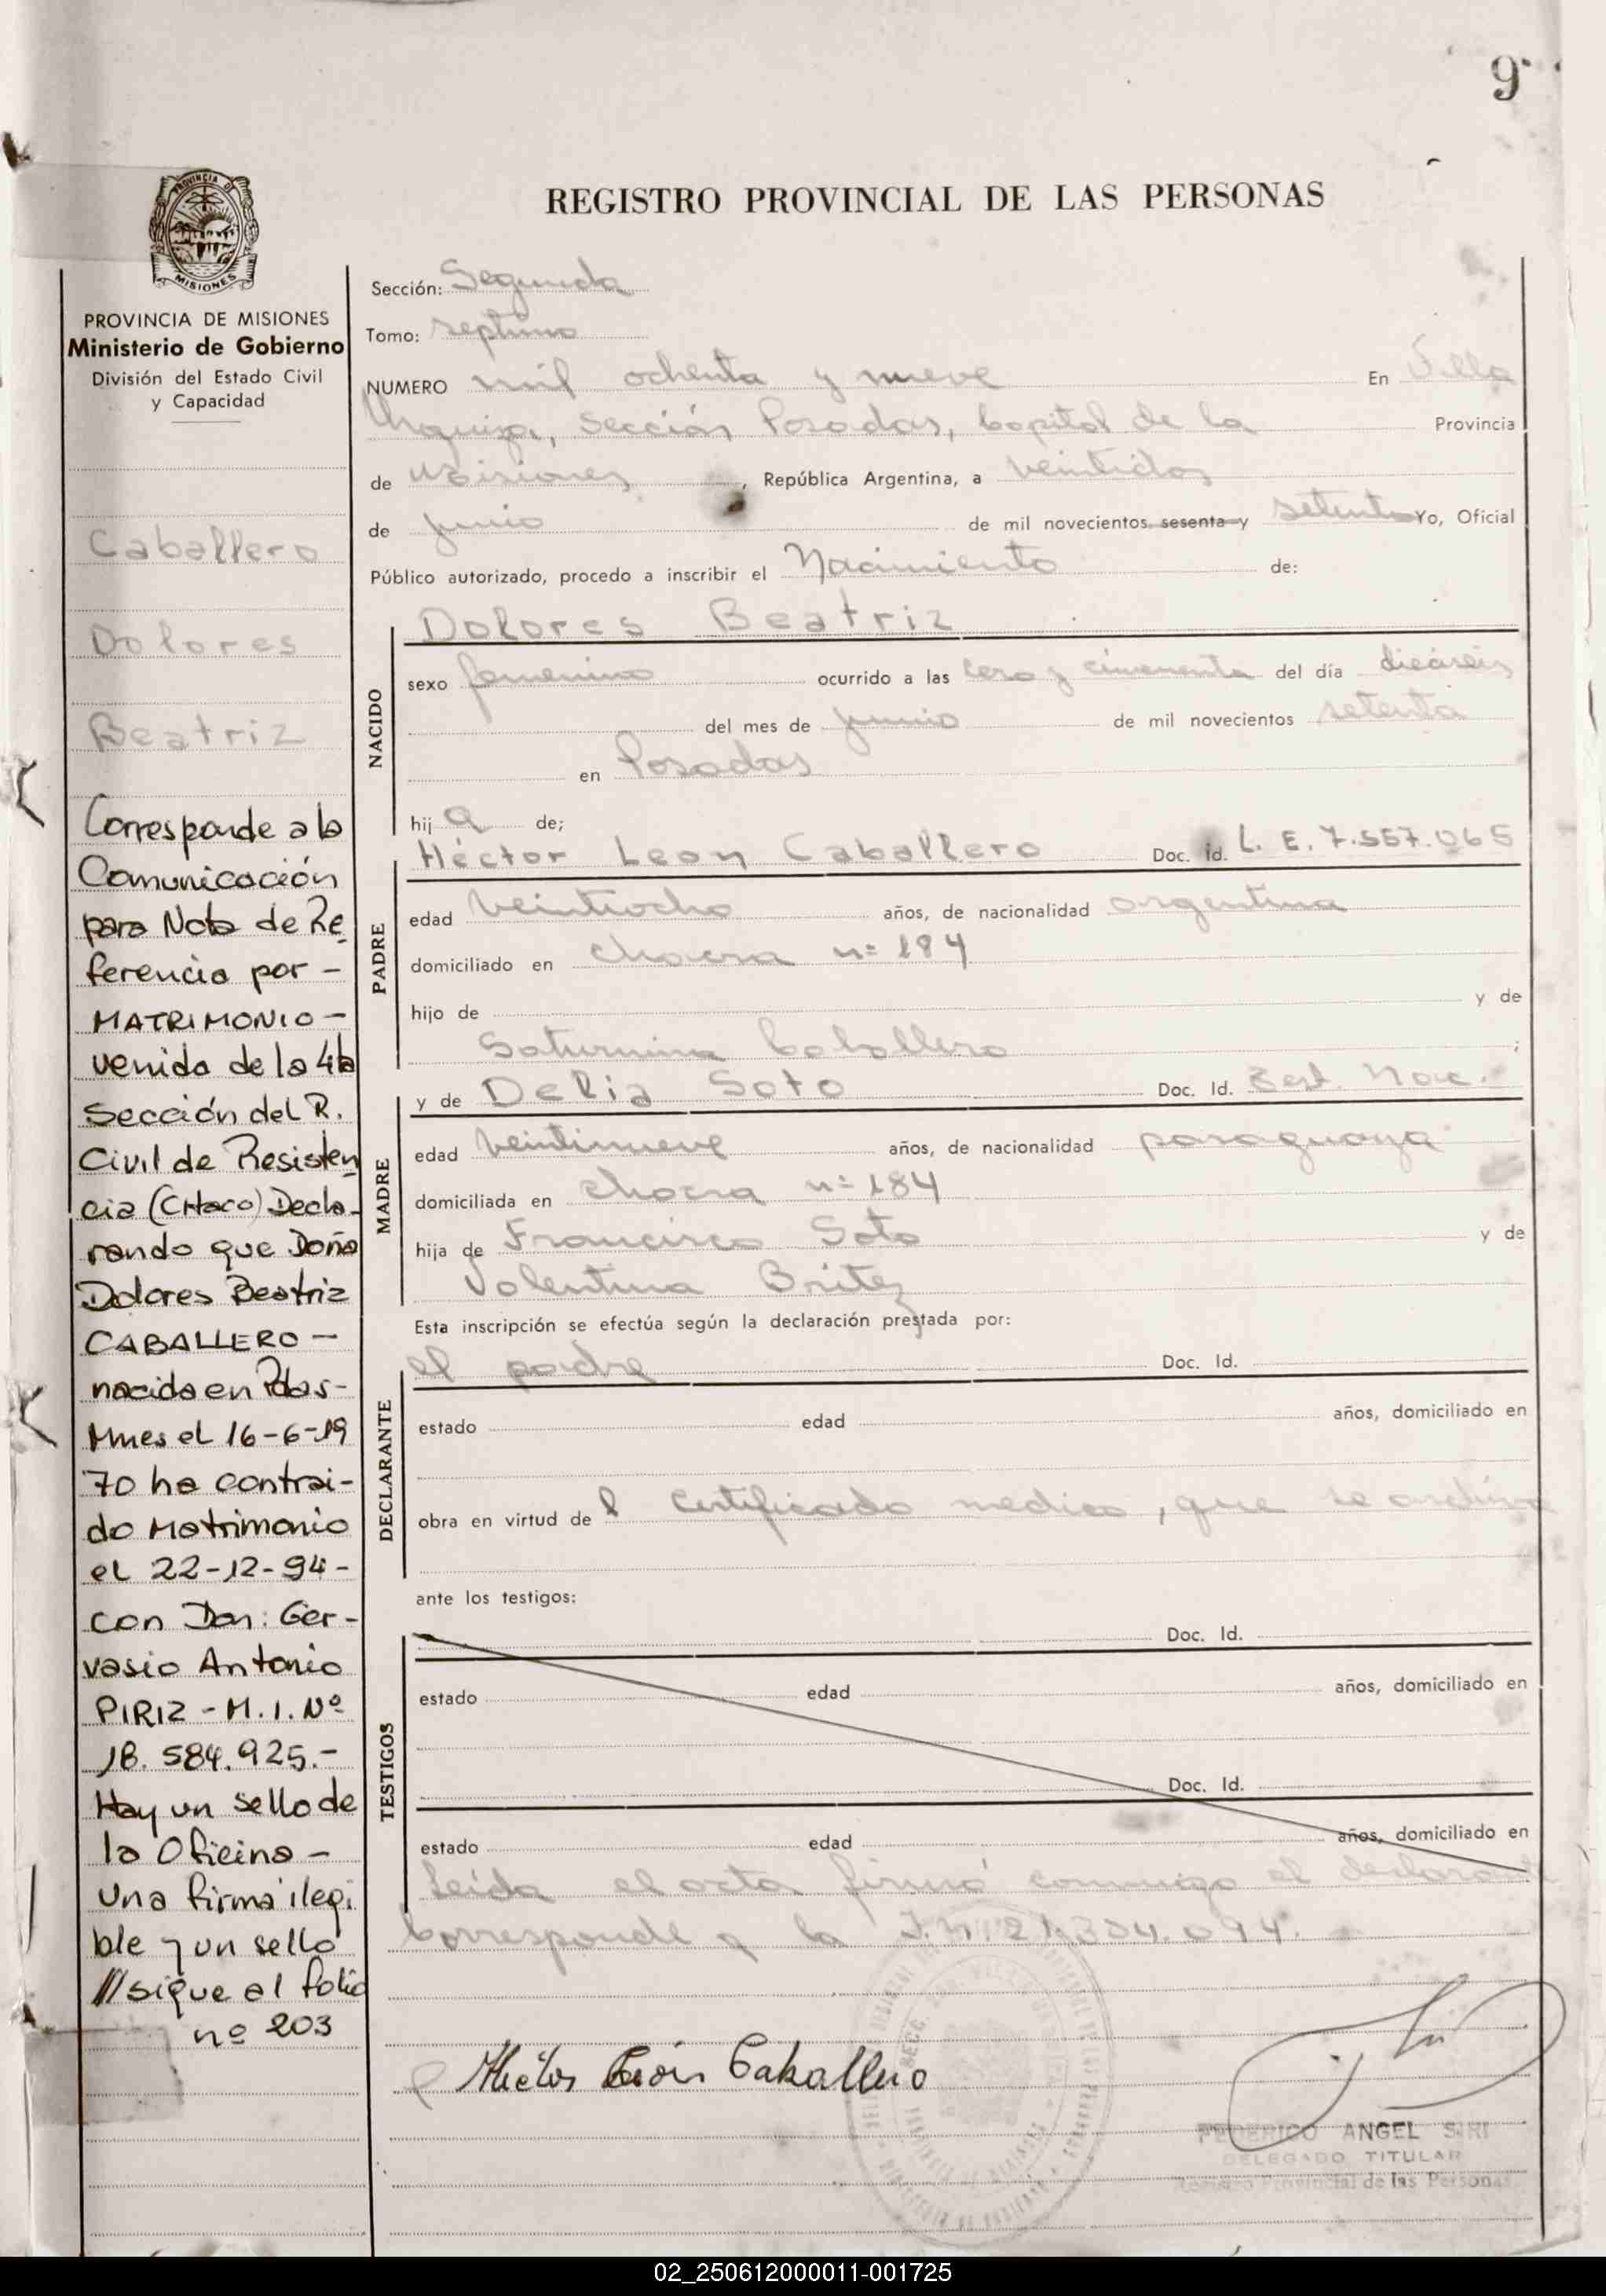 9
PROVINCIA DE
MISIONES
REGISTRO PROVINCIAL DE LAS PERSONAS
PROVINCIA DE MISIONES
Ministerio de Gobierno
División del Estado Civil
y Capacidad
Caballero
Dolores
Beatriz
Corresponde a la
Comunicación
para Nota de Re
ferencia por -
MATRIMONIO -
venida de la 4ta
Sección del R.
Civil de Resisten
cia (CHaco) Decla-
rando que Doña
Dolores Beatriz
CABALLERO -
nacida en Pdas-
Mnes el 16-6-19
70 ha contrai-
do Matrimonio
el 22-12-94-
con Don: Ger-
vasio Antonio
PIRIZ - M.I. Nº
18.584.925.-
Hay un sello de
la Oficina -
Una firma ilegi
ble y un sello
///sigue al folio
nº 203
Sección: Segunda
Tomo: septimo
NUMERO mil ochenta y nueve En Villa
Urquiza, Sección Posadas, Capital de la Provincia
de Misiones, República Argentina, a veintidos
de junio de mil novecientos sesenta y setenta Yo, Oficial
Público autorizado, procedo a inscribir el Nacimiento de:
NACIDO
Dolores Beatriz
sexo femenino ocurrido a las cero y cincuenta del día dieciseis
del mes de junio de mil novecientos setenta
en Posadas
hij a de;
PADRE
Héctor Leon Caballero Doc. id. L. E. 7.557.065
edad veintiocho años, de nacionalidad argentina
domiciliado en chacra nº 184
hijo de y de
Saturnina Caballero ;
MADRE
y de Delia Soto Doc. Id. Cert. Nac.
edad veintinueve años, de nacionalidad paraguaya
domiciliada en chacra nº 184
hija de Francisco Soto y de
Valentina Britez
Esta inscripción se efectúa según la declaración prestada por:
DECLARANTE
el padre Doc. Id.
estado edad años, domiciliado en
obra en virtud de l certificado medico, que se archiva
ante los testigos:
TESTIGOS
Doc. Id.
estado edad años, domiciliado en
Doc. Id.
estado edad años, domiciliado en
Leída el acta firmó conmigo el declarante
Corresponde a la 21.304.094.
Héctor León Caballero
FEDERICO ANGEL SIRI
DELEGADO TITULAR
Registro Provincial de las Personas
02_250612000011-001725